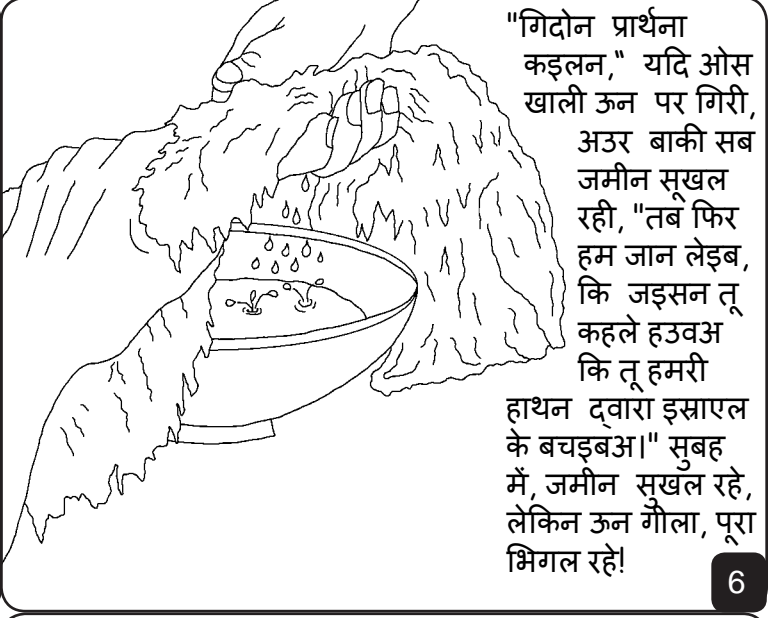 "गिदोन प्रार्थना
कइलन,“ यदि ओस
खाली ऊन पर गिरी,
अउर बाकी सब
जमीन सूखल
रही, "तब फिर
हम जान लेइब,
कि जइसन तू
कहले हउवअ
कि तू हमरी
हाथन द्वारा इस्राएल
के बचइबअ।" सुबह
में, जमीन सुखल रहे,
लेकिन ऊन गीला, पूरा
भिगल रहे!
6